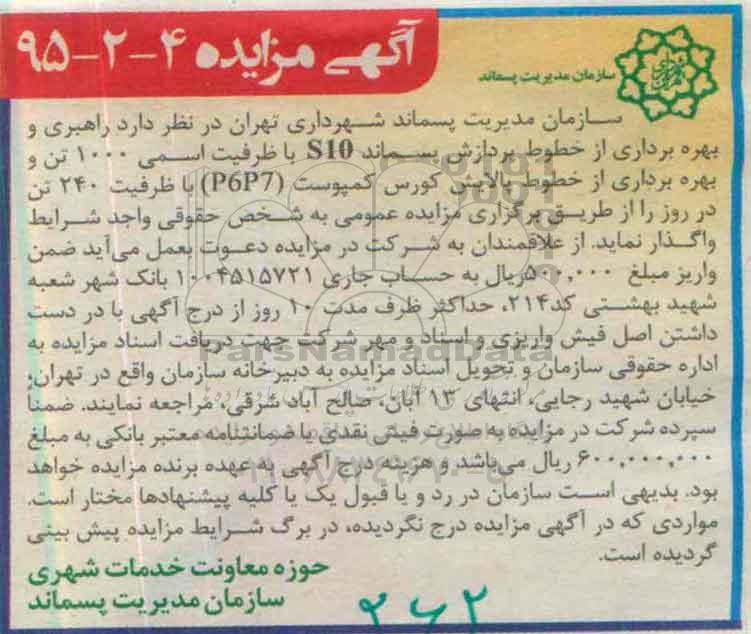 آگهی مزایده ۴-۲-۹۵
سازمان مدیریت پسماند
سازمان مدیریت پسماند شهرداری تهران در نظر دارد راهبری و
بهره برداری از خطوط پردازش پسماند S10 با ظرفیت اسمی ۱۰۰۰ تن و
بهره برداری از خطوط پالایش کورس کمپوست (P6P7) با ظرفیت ۲۴۰ تن
در روز را از طریق برگزاری مزایده عمومی به شخص حقوقی واجد شرایط
واگذار نماید. از علاقمندان به شرکت در مزایده دعوت بعمل می‌آید ضمن
واریز مبلغ ۵۰۰,۰۰۰ریال به حساب جاری ۱۰۰۴۵۱۵۷۲۱ بانک شهر شعبه
شهید بهشتی کد۲۱۴، حداکثر ظرف مدت ۱۰ روز از درج آگهی با در دست
داشتن اصل فیش واریزی و اسناد و مهر شرکت جهت دریافت اسناد مزایده به
اداره حقوقی سازمان و تحویل اسناد مزایده به دبیرخانه سازمان واقع در تهران،
خیابان شهید رجایی، انتهای ۱۳ آبان، صالح آباد شرقی، مراجعه نمایند. ضمناً
سپرده شرکت در مزایده به صورت فیش نقدی یا ضمانتنامه معتبر بانکی به مبلغ
۶۰۰,۰۰۰,۰۰۰ ریال می‌باشد و هزینه درج آگهی به عهده برنده مزایده خواهد
بود. بدیهی است سازمان در رد و یا قبول یک یا کلیه پیشنهادها مختار است.
مواردی که در آگهی مزایده درج نگردیده، در برگ شرایط مزایده پیش بینی
گردیده است.
حوزه معاونت خدمات شهری
سازمان مدیریت پسماند
ParsNamadData